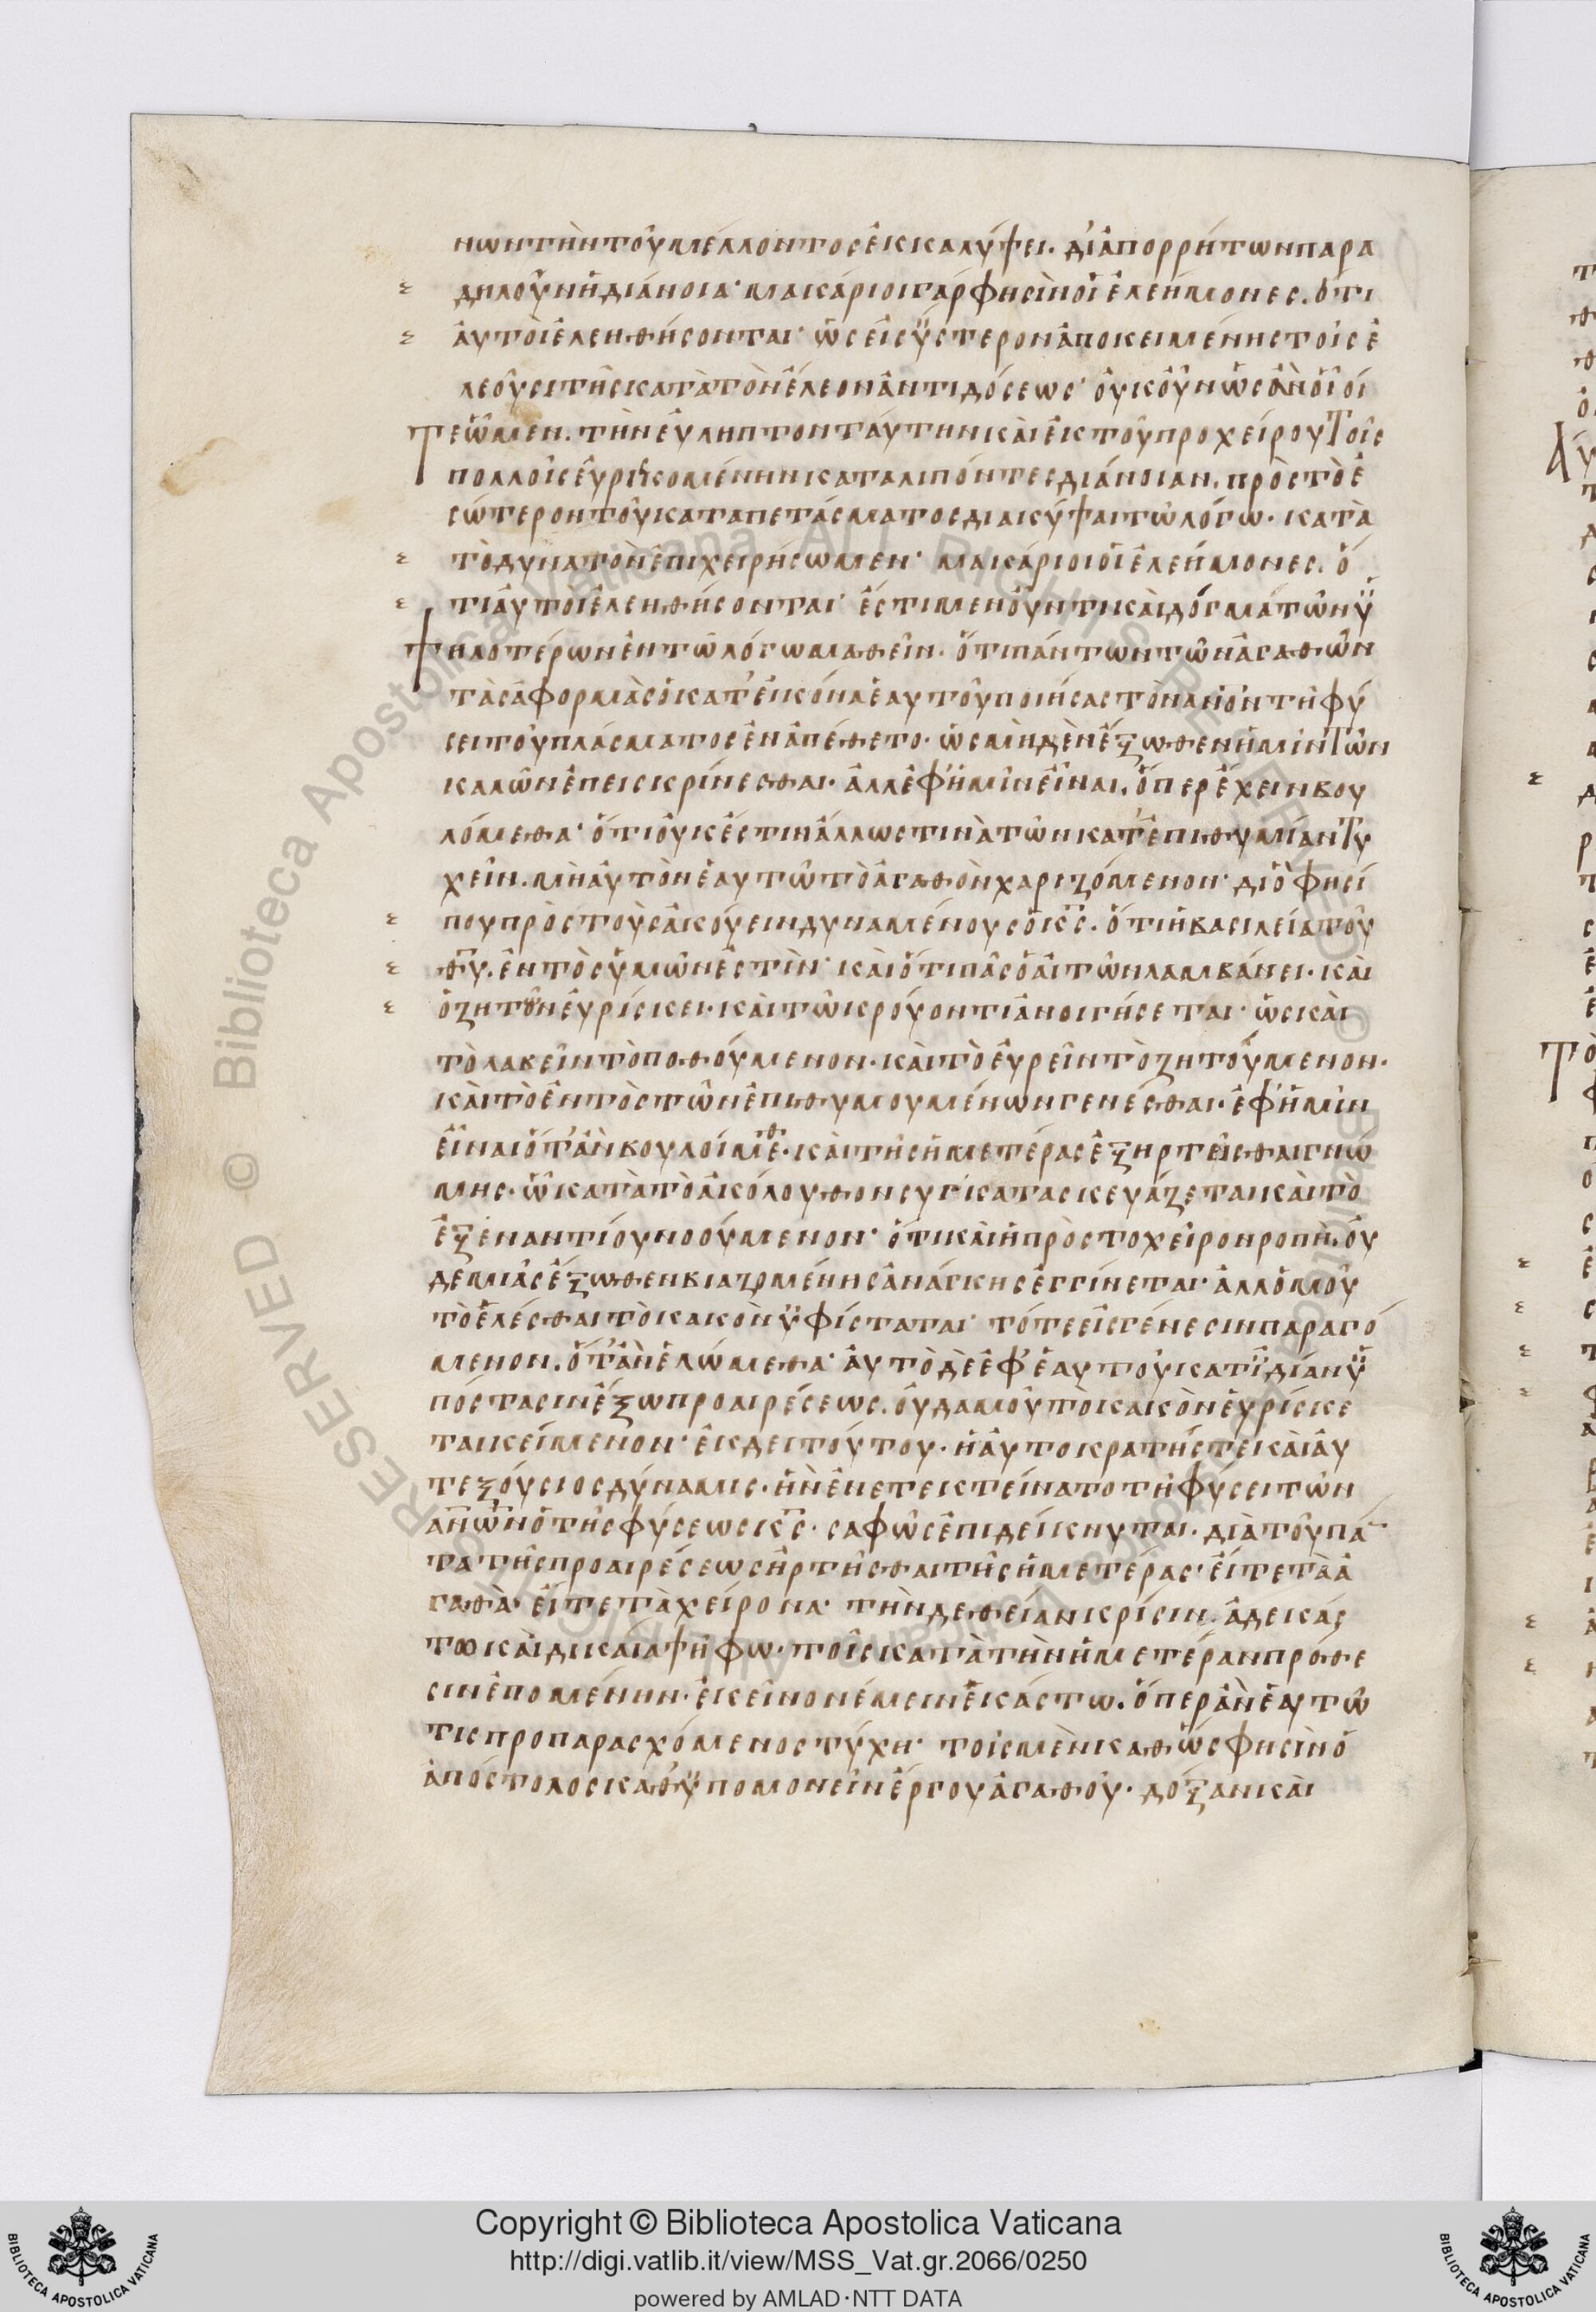 νων τὴν τοῦ μέλλοντος ἐκκαλύψει. δι᾽ ἀπορρήτων παρα
δηλοῦν ἡ διάνοια· μακάριοι γάρ φησιν οἱ ἐλεήμονες. ὅτι
αὐτοὶ ἐλεηθήσονται· ὡς εἰς ὕστερον ἀποκειμένης τοῖς ἐ
λεοῦσι τῆς κατὰ τὸν ἔλεον ἀντιδόσεως· οὐκοῦν ὡς ἂν οἷοί
τε ὦμεν. τὴν εὔληπτον ταύτην καὶ ἐκ τοῦ προχείρου τοῖς
πολλοῖς εὑρισκομένην καταλιπόντες διάνοιαν, πρὸς τὸ ἐ
σώτερον τοῦ καταπετάσματος διακύψαι τῷ λόγῳ. κατὰ
τὸ δυνατὸν ἐπιχειρήσωμεν· μακάριοι οἱ ἐλεήμονες. ὅ
τι αὐτοὶ ἐλεηθήσονται· ἔστι μὲν οὖν τι καὶ δογμάτων ὑ
ψηλοτέρων ἐν τῷ λόγῳ μαθεῖν. ὅτι πάντων τῶν ἀγαθῶν
τὰς ἀφορμὰς ὁ κατ᾽ εἰκόνα ἑαυτοῦ ποιήσας τὸν ανον τῇ φύ
σει τοῦ πλάσματος ἐναπέθετο. ὡς μηδὲν ἔξωθεν ἡμῖν τῶν
καλῶν ἐπεισκρίνεσθαι. ἀλλ ἐφ᾽ ἡμῖν εἶναι, ὅπερ ἔχειν βου
λόμεθα· ὅτι οὐκ ἔστιν ἄλλως τινὰ τῶν κατ᾽ ἐπιθυμίαν τυ
χεῖν. μὴ αὐτὸν ἑαυτῷ τὸ ἀγαθὸν χαριζόμενον· διό φησί
που πρὸς τοὺς ἀκούειν δυναμένους ὁ κς. ὅτι ἡ βασιλεία τοῦ
θυ. ἐντὸς ὑμῶν ἐστὶν· καὶ ὅτι πᾶς ὁ αἰτῶν λαμβάνει. καὶ
ὁ ζητῶν εὑρίσκει. καὶ τῷ κρούοντι ἀνοιγήσεται· ὡς καὶ
τὸ λαβεῖν τὸ ποθούμενον. καὶ τὸ εὑρεῖν τὸ ζητούμενον.
καὶ τὸ ἐντὸς τῶν ἐπιθυμουμένων γενέσθαι. ἐφ᾽ ἡμῖν
εἶναι ὅτ᾽ ἂν βουλοίμεθ. καὶ τῆς ἡμετέρας ἐξηρτεῖσθαι γνώ
μης. ᾧ κατὰ τὸ ἀκόλουθον συγκατασκευάζεται καὶ τὸ
ἐξ ἐναντίου νοούμενον· ὅτι καὶ ἡ πρὸς τὸ χεῖρον ῥοπὴ. οὐ
δεμιᾶς ἔξωθεν βιαζομένης ἀνάγκης ἐγγίνεται· ἀλλ ὁμοῦ
τὸ ἑλέσθαι τὸ κακὸν ὑφίσταται· τότε εἰς γένεσιν παραγό
μενον. ὅτ᾽ ἂν ἑλώμεθα· αὐτὸ δὲ ἐφ᾽ ἑαυτοῦ κατ ἰδίαν ὑ
πόστασιν ἔξω προαιρέσεως. οὐδαμοῦ τὸ κακὸν εὑρίσκε
ται κείμενον· ἐκ δὲ τούτου. ἡ αὐτοκρατής τε καὶ αὐ
τεξούσιος δύναμις. ἣν ἐνετεκτείνατο τῇ φύσει τῶν
ανων ὁ τῆς φύσεως κς. σαφῶς ἐπιδείκνυται. διὰ τοῦ πά
τα τῆς προαιρέσεως ἠρτῆσθαι τῆς ἡμετέρας· εἴτε τὰ ἀ
γαθὰ· εἴτε τὰ χείρονα· τὴν δὲ θείαν κρίσιν. ἀδεκάς
τω καὶ δικαία ψήφω. τοῖς κατὰ τὴν ἡμετέραν πρόθε
σιν ἑπομένην. ἐκεῖνο νέμειν ἑκάστω. ὅπερ ἂν ἑαυτῷ
τις προπαρασχόμενος τύχη· τοῖς μὲν καθὼς φησὶν ὁ
ἀπόστολος καθ᾽ ὑπομονεὶν ἔργου ἀγαθοῦ. δόξαν καὶ
Copyright © Biblioteca Apostolica Vaticana
http://digi.vatlib.it/view/MSS_Vat.gr.2066/0250
powered by AMLAD·NTT DATA